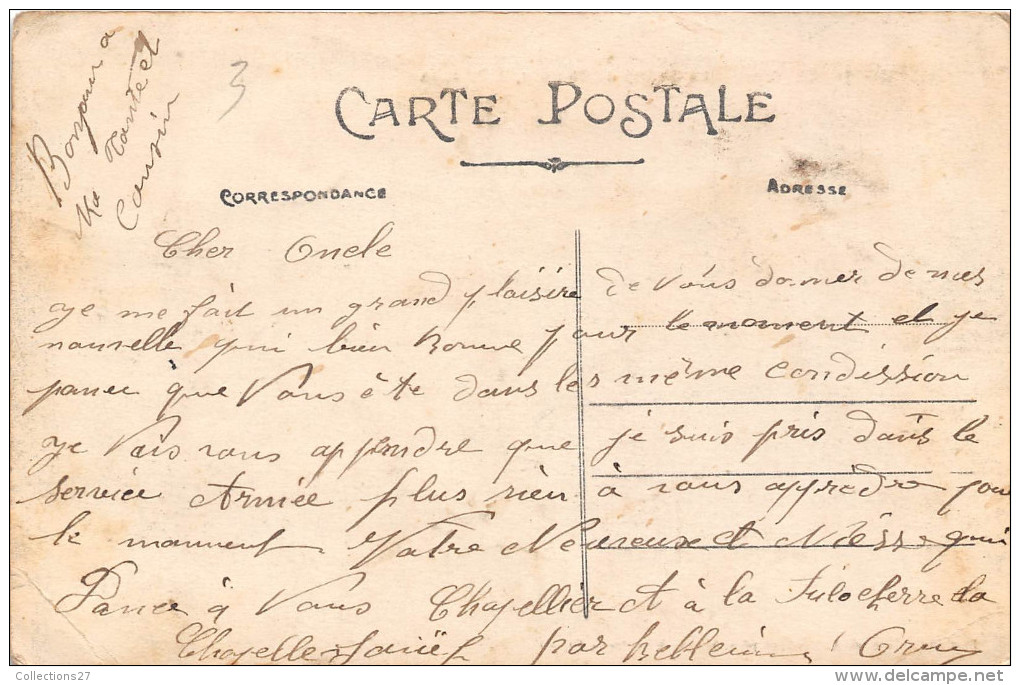 Bonjour a
Ma Tante et
Cousin
3
CARTE POSTALE
CORRESPONDANCE
ADRESSE
Cher Oncle
je me fait un grand plaisire de Vous donner de mes
nouvelle qui bien Bonne pour le moment et je
pance que Vous ête dans les même condission
je Vais vous apprendre que je suis pris dans le
service Armée plus rien à vous apprèdre pour
le moument Votre Neuveux et Nièsse qui
Pance à Vous Chapellier et à la
Chapelle par
Collections27
delcampe.net